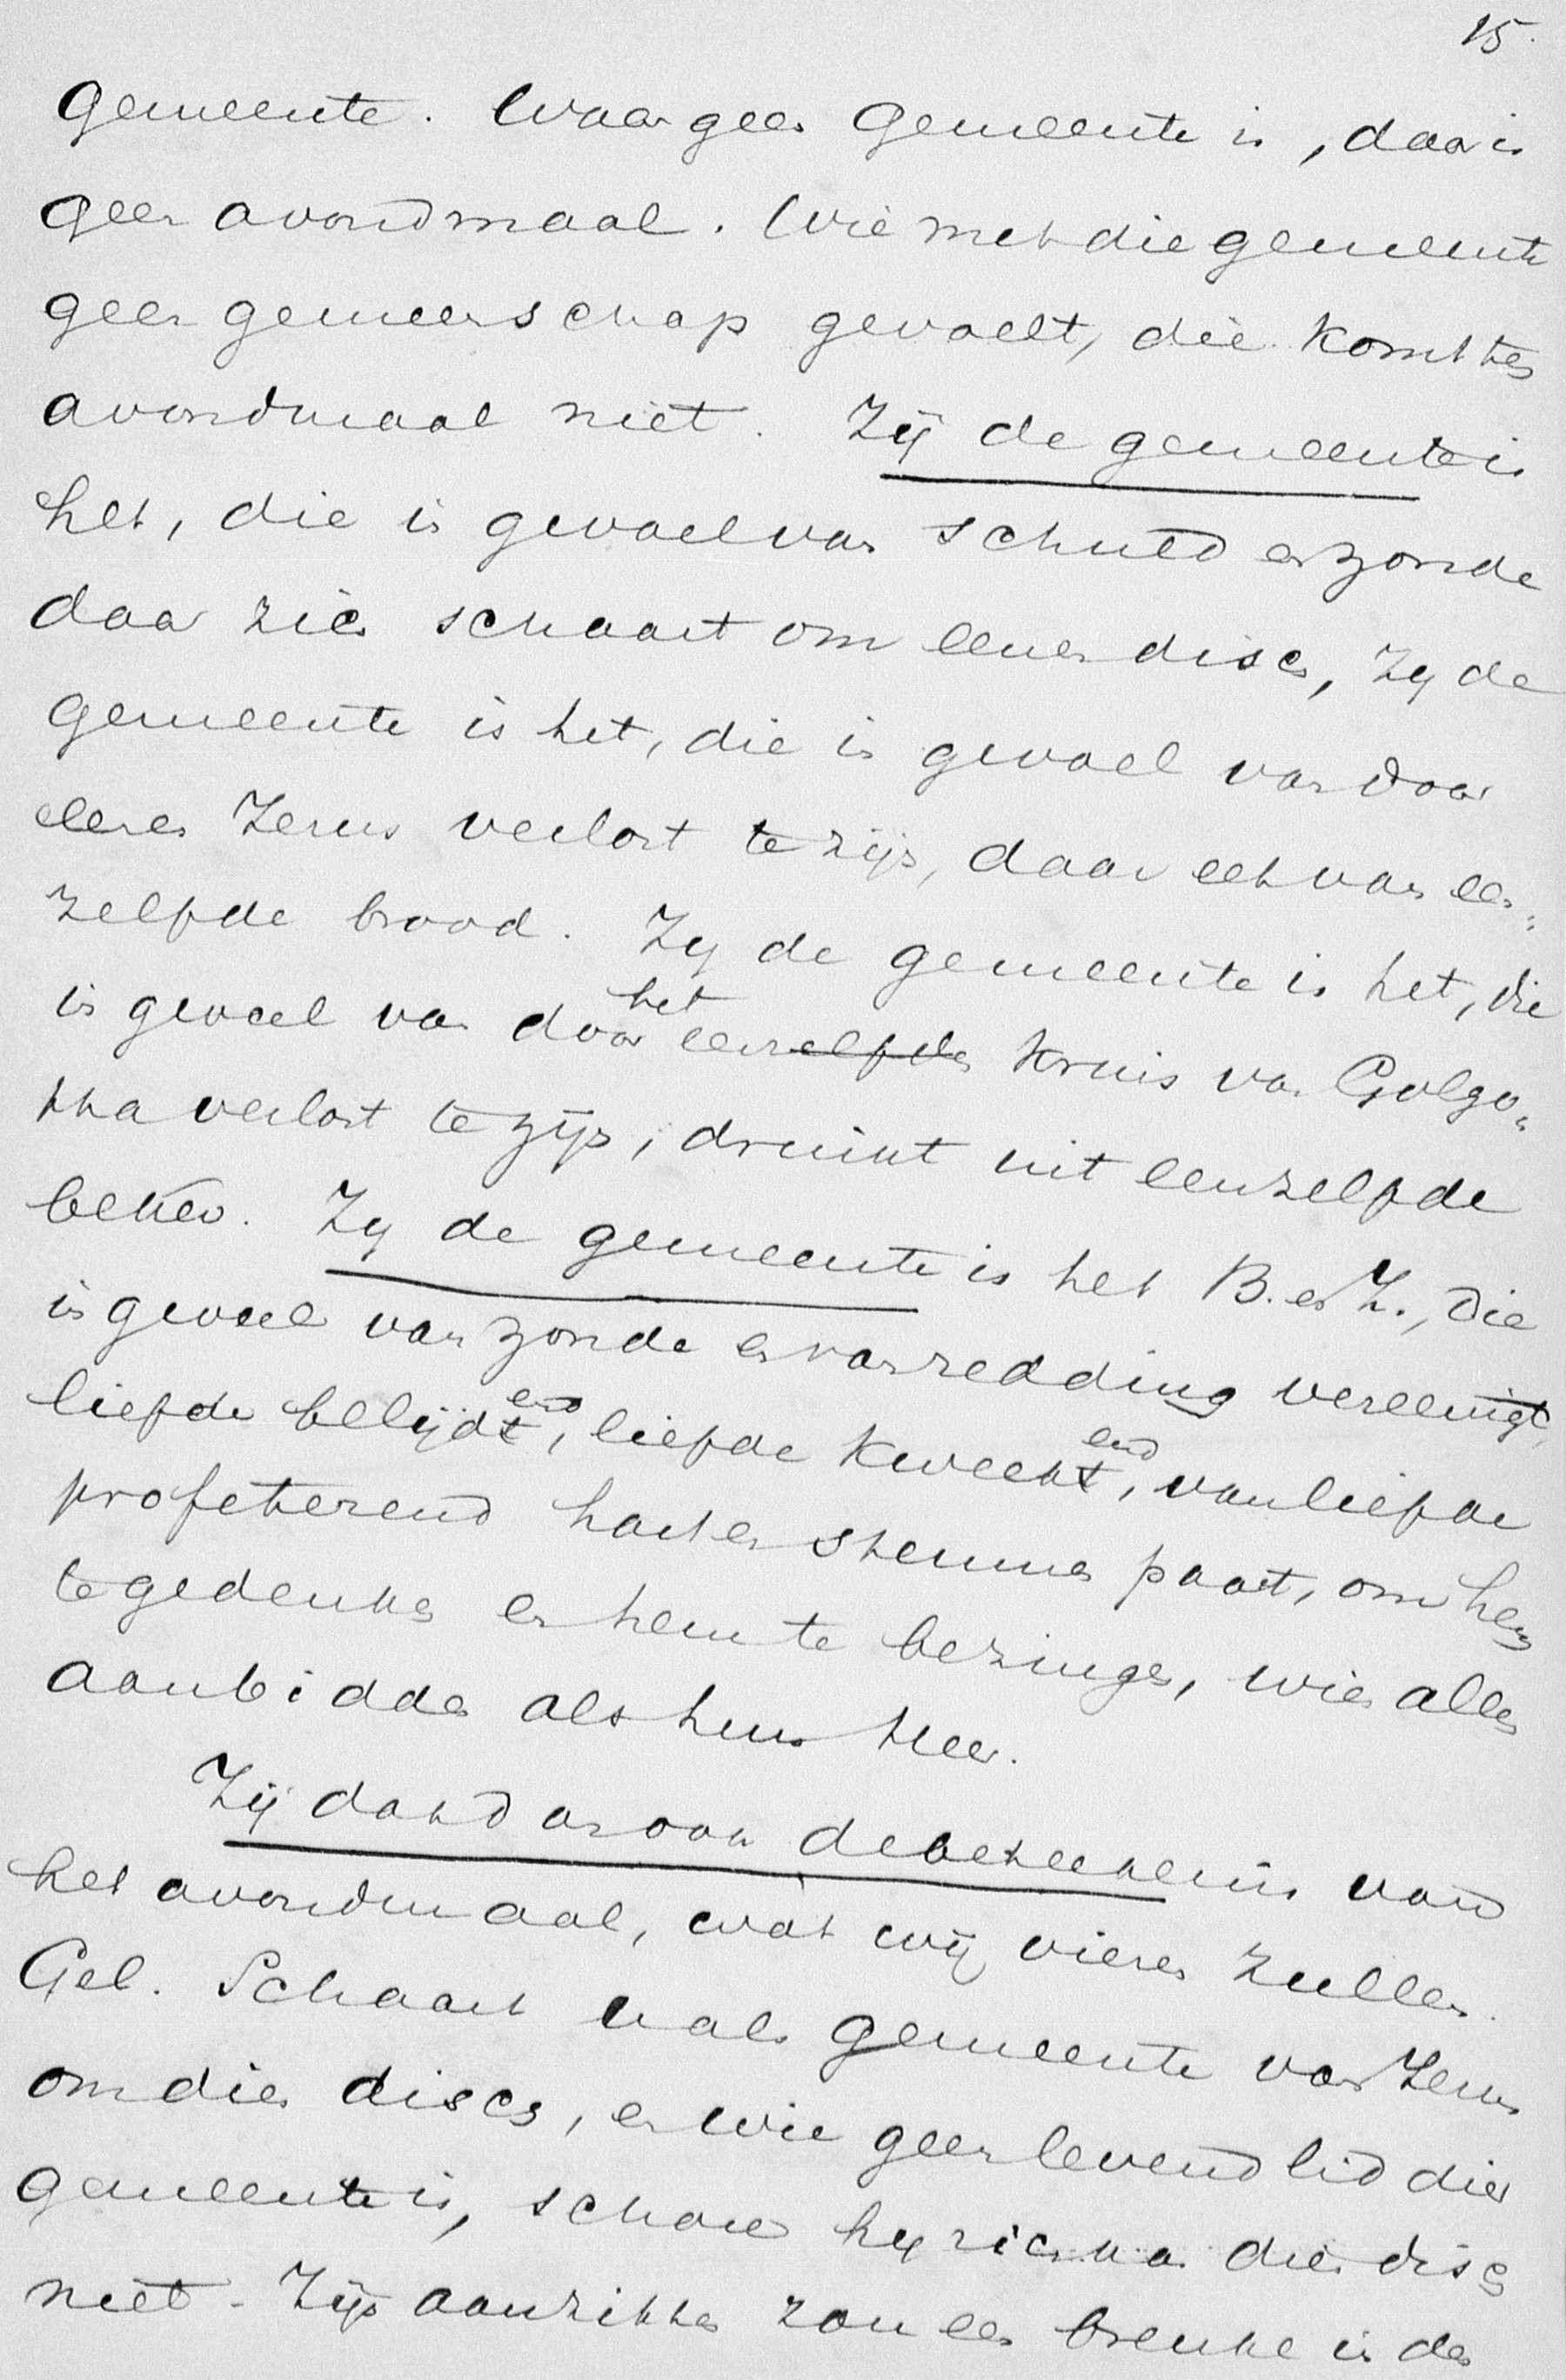 15.
gemeente. Waar geen gemeente is, daar is
geen avondmaal. Wie met die gemeente
geen gemeenschap gevoelt, die komt ten
avondmaal niet. Zij de gemeente is
het, die in gevoel van schuld en zonde
daar zich schaart om eenen disch, zij de
gemeente is het, die in gevoel van door
eenen Jezus verlost te zijn, daar eet van een=
zelfde brood. Zij de gemeente is het, die
in gevoel van door het eenzelfde kruis van Golgo=
tha verlost te zijn, drinkt uit eenzelfde
beker. Zij de gemeente is het B. en Z., die
in gevoel van zonde en van redding vereenigt,
liefde belijdend, liefde kweekend, van liefde
profeterend hart en stemme paart, om hem
te gedenken en hem te bezingen, wien allen
aanbidden als hun Heer.
Zij dat dan ook de beteekenis van
het avondmaal, wat wij vieren zullen.
Gel. Schaart u als gemeente van Jezus
om dien disch, en wie geen levend lid dier
gemeente is, schare hij zich om dien disch
niet. Zijn aanzitten zou een breuke in den